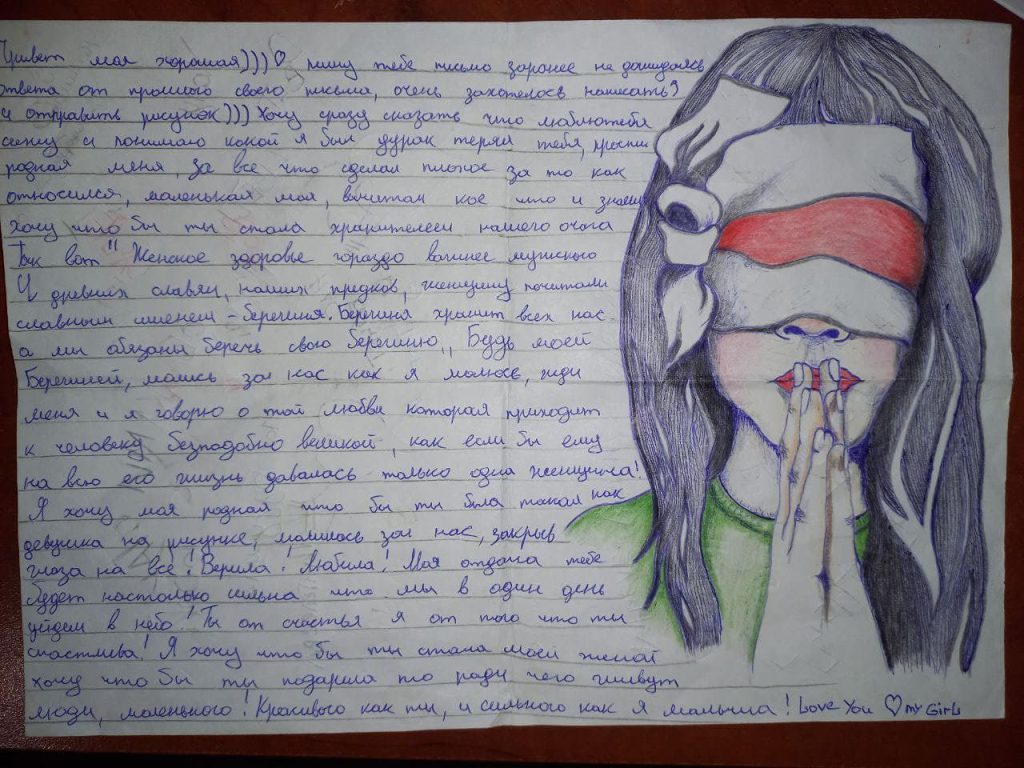 Привет моя хорошая)))♡ пишу тебе письмо заранее не дождавшись
ответа от прошлого своего письма, очень захотелось написать?
и отправить рисунок))) Хочу сразу сказать что люблютебя
и понимаю какой я был дурак теряя тебя, прости
родная меня, за все что сделал плохое за то как
относился, маленькая моя, вычитал кое что и знаешь
хочу что бы ты стала хранителем нашего очага
Так вот " Женское здоровье гораздо важнее мужского
У древних славян, наших предков, женщину почитали
славным именем - берегиня. Берегиня хранит всех нас
а мы обязаны беречь свою берегиню,, Будь моей
Берегиней, молись за нас как я молюсь, жди
меня и я говорю о той любви которая приходит
к человеку безподобно великой, как если бы ему
на всю его жизнь давалась только одна женщина!
Я хочу моя родная что бы ты была такая как
девушка на рисунке, молилась за нас, закрыв
глаза на все! Верила! Любила! Моя отдача тебе
будет настолько сильна что мы в один день
уйдем в небо! Ты от счастья я от того что ты
счастлива! Я хочу что бы ты стала моей женой
хочу что бы ты подарила то ради чего живут
люди, маленького! Красивого как ты, и сильного как я мальчиша! Love You ♡ my Girl